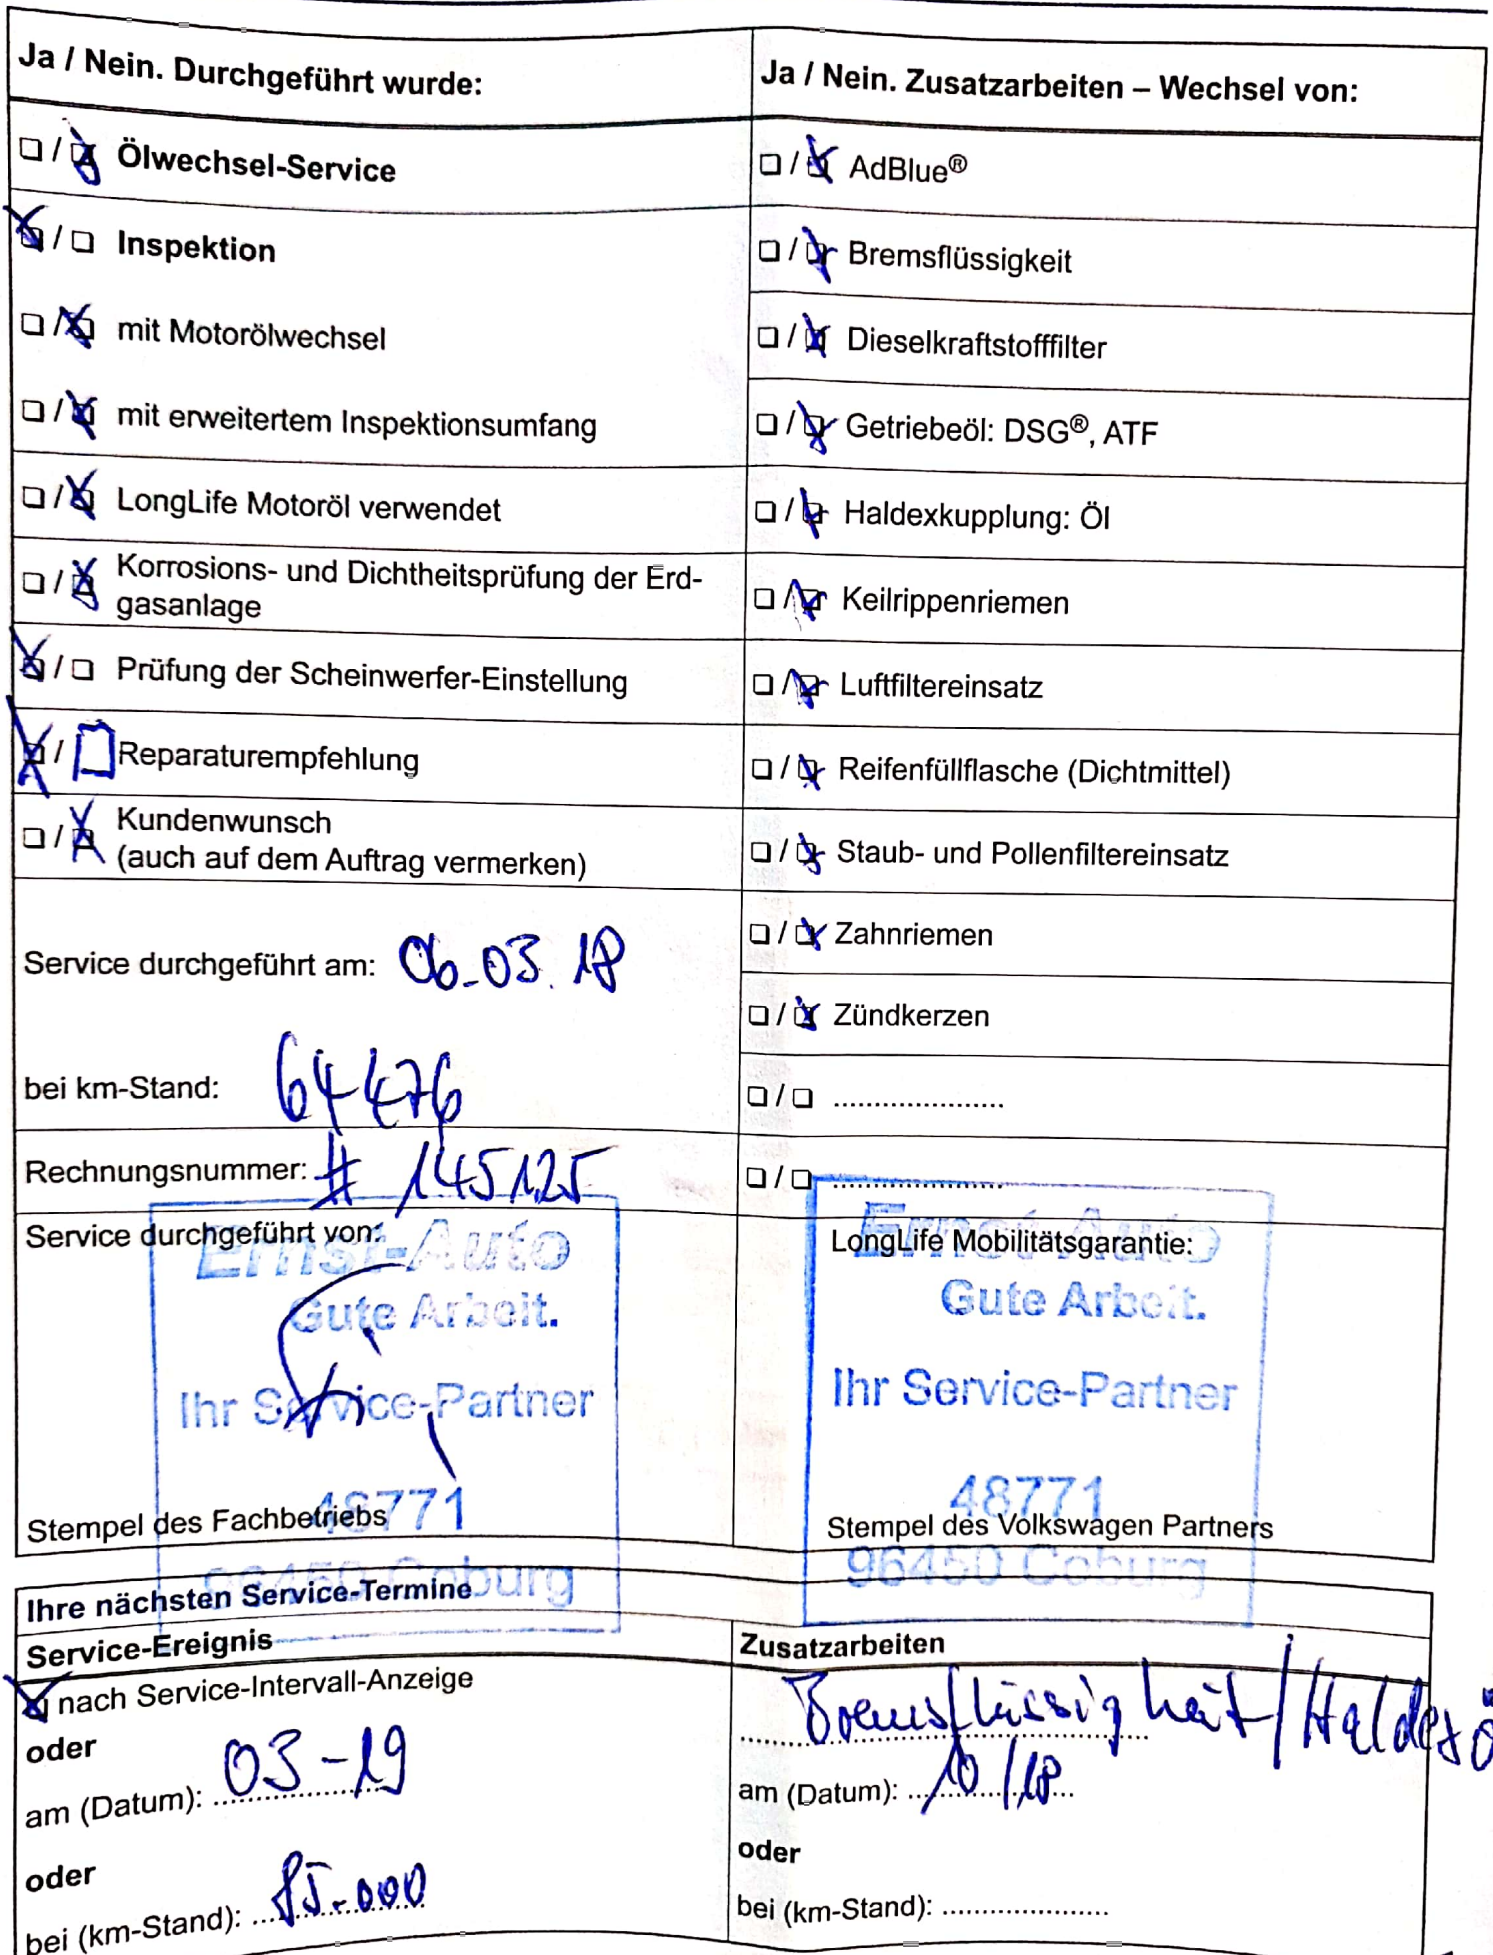 Ja / Nein. Durchgeführt wurde:
☐ / ☒ Ölwechsel-Service
☒ / ☐ Inspektion
☐ / ☒ mit Motorölwechsel
☐ / ☒ mit erweitertem Inspektionsumfang
☐ / ☒ LongLife Motoröl verwendet
☐ / ☒ Korrosions- und Dichtheitsprüfung der Erd-
gasanlage
☒ / ☐ Prüfung der Scheinwerfer-Einstellung
☒ / ☐ Reparaturempfehlung
☐ / ☒ Kundenwunsch
(auch auf dem Auftrag vermerken)
Service durchgeführt am: 06.03.18
bei km-Stand: 64476
Rechnungsnummer: # 145125
Service durchgeführt von:
Ernst-Auto
Gute Arbeit.
Ihr Service-Partner
48771
Stempel des Fachbetriebs
96450 Coburg
Ja / Nein. Zusatzarbeiten – Wechsel von:
☐ / ☒ AdBlue®
☐ / ☒ Bremsflüssigkeit
☐ / ☒ Dieselkraftstofffilter
☐ / ☒ Getriebeöl: DSG®, ATF
☐ / ☒ Haldexkupplung: Öl
☐ / ☒ Keilrippenriemen
☐ / ☒ Luftfiltereinsatz
☐ / ☒ Reifenfüllflasche (Dichtmittel)
☐ / ☒ Staub- und Pollenfiltereinsatz
☐ / ☒ Zahnriemen
☐ / ☒ Zündkerzen
☐ / ☐ .....................
☐ / ☐ .....................
Ernst-Auto
LongLife Mobilitätsgarantie:
Gute Arbeit.
Ihr Service-Partner
48771
Stempel des Volkswagen Partners
96450 Coburg
Ihre nächsten Service-Termine
Service-Ereignis
☒ nach Service-Intervall-Anzeige
oder
am (Datum): 03-19
oder
bei (km-Stand): 85.000
Zusatzarbeiten
Bremsflüssigkeit / Haldexö
am (Datum): 10/18
oder
bei (km-Stand): .....................